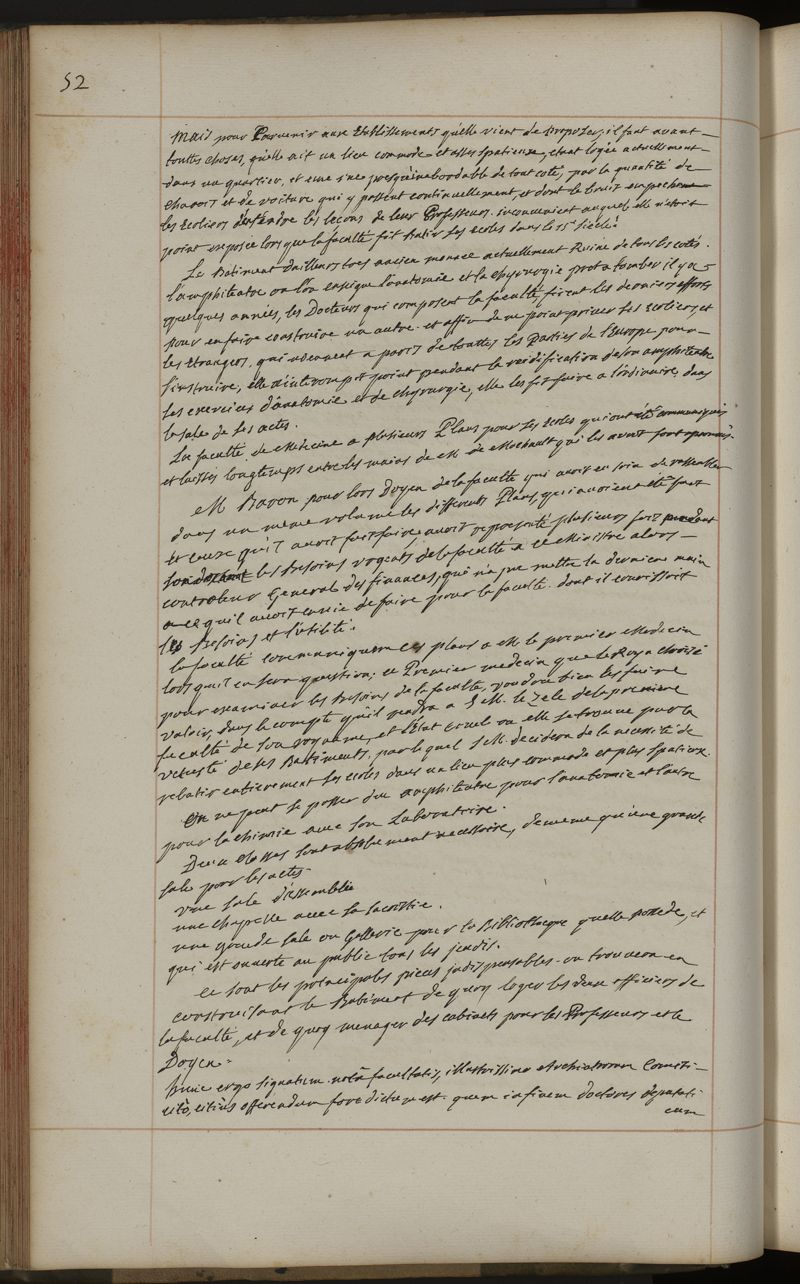 52
Mais pour Parvenir aux Etablissements qu'elle vient de proposer, il faut avant
touttes choses, qu'elle ait un lieu commode et assez spatieux, etant logée actuellement
dans un quartier, et une rue presqu'inabordable de tout coté, par la quantité de
chariots et de voiture qui y passent continuellement, et dont le bruit empeche
les Ecoliers d'entendre les lecons de leur Professeur. inconvenient auquel elle n'etoit
point exposée lorsque la faculté fit Batir ses ecoles dans le 15e Siècle.
Le Batiment d'ailleurs tres ancien menace actuellement Ruine de tous les cotés.
l'amphiteatre ou l'on enseigne l'anatomie et la chyrurgie prest a tomber il y a
quelques années, les Docteurs qui composent la faculté firent les derniers efforts
pour en faire construire un autre. et affin de ne point priver ses Ecoliers, et
les Etrangers, qui viennent a paris de touttes les Parties de l'Europe, pour
s'instruire, elle n'interrompit point pendant la reedification de son amphiteatre
ses exercices d'anatomie et de chyrurgie, elle les fit faire a l'ordinaire, dans
la sale de ses actes.
La faculté de Medecine a plusieurs Plans pour ses ecoles qui ont été communiqués
et laissés longtemps entre les mains de M. de Machault qui les avoit fort approuvés.
M. Baron pour lors Doyen de la faculté qui avoit eu soin de rassembler
dans un meme volume les differents Plans, qui avoient été fait
et ceux qu'il avoit fait faire avoit representé plusieurs fois pendant
son decanat les Besoins urgents de la faculté a ce Ministre alors
controleur General des finances, qui n'a pu mettre la derniere main
a ce qu'il avoit envie de faire pour la faculté. dont il connoissoit
les Besoins et l'utilité.
la faculté communiquera ces plans a M. le premier Medecin
lorsqu'il en sera question; ce Premier medecin que le Roy a choisi
pour examiner les Besoins de la faculté, voudra bien les faire
valoir, dans le compte qu'il rendra a S. M. le zele de la premiere
faculté de son royaume, et l'Etat cruel ou elle se trouve par la
vetusté de ses Batiments, par lequel S. M. decidera de la necessité de
rebatir entierement ses ecoles dans un lieu plus commode et plus spatieux.
On ne peut se passer d'un amphiteatre pour l'anatomie et l'autre
pour la chimie avec son Laboratoire.
Deux classes sont absolument necessaires, de meme qu'une grande
sale pour les actes.
une sale d'assemblée
une chapelle avec sa sacristie.
une grande sale ou Gallerie pour la Bibliotheque qu'elle possede, et
qui est ouverte au public tous les jeudis.
Ce sont les principales pieces indispensables. on trouvera en
construisant le Batiment de quoy loger les deux officiers de
la faculté, et de quoy menager des cabinets pour les Professeurs et le
Doyen.
hunc ergo signatum nota facultatis, illustrissimo Archiatrorum Comiti
citò, citiùs offerendum fore dictum est. quem in finem doctores deputati
cum